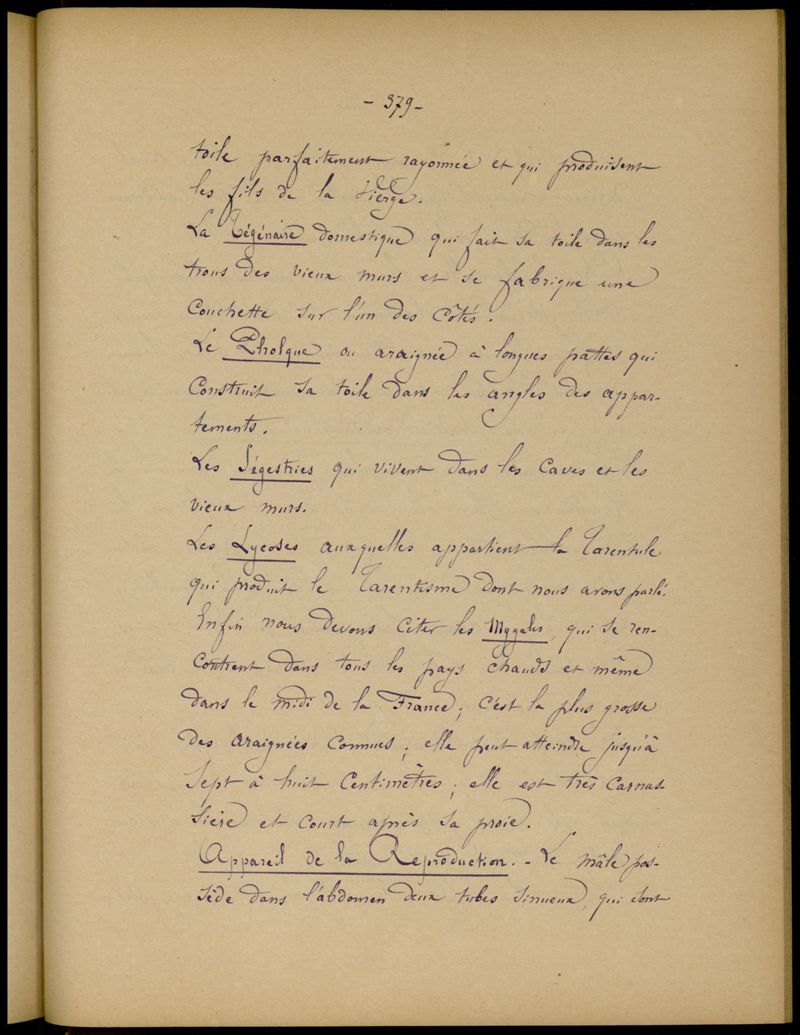 - 379 -
toile parfaitement rayonnée et qui produisent
les fils de la Vierge.
La Tégénaire domestique qui fait sa toile dans les
trous des vieux murs et se fabrique une
couchette sur l'un des côtés.
Le Pholque ou araignée à longues pattes qui
construit sa toile dans les angles des appar-
tements.
Les Ségestries qui vivent dans les caves et les
vieux murs.
Les Lycoses auxquelles appartient la Tarentule
qui produit le Tarentisme dont nous avons parlé.
Enfin nous devons citer les Mygales, qui se ren-
contrent dans tous les pays chauds et même
dans le midi de la France; c'est la plus grosse
des araignées connues; elle peut atteindre jusqu'à
sept à huit centimètres; elle est très carnas-
sière et court après sa proie.
Appareil de la Reproduction. - Le mâle pos-
sède dans l'abdomen deux tubes sinueux, qui sont